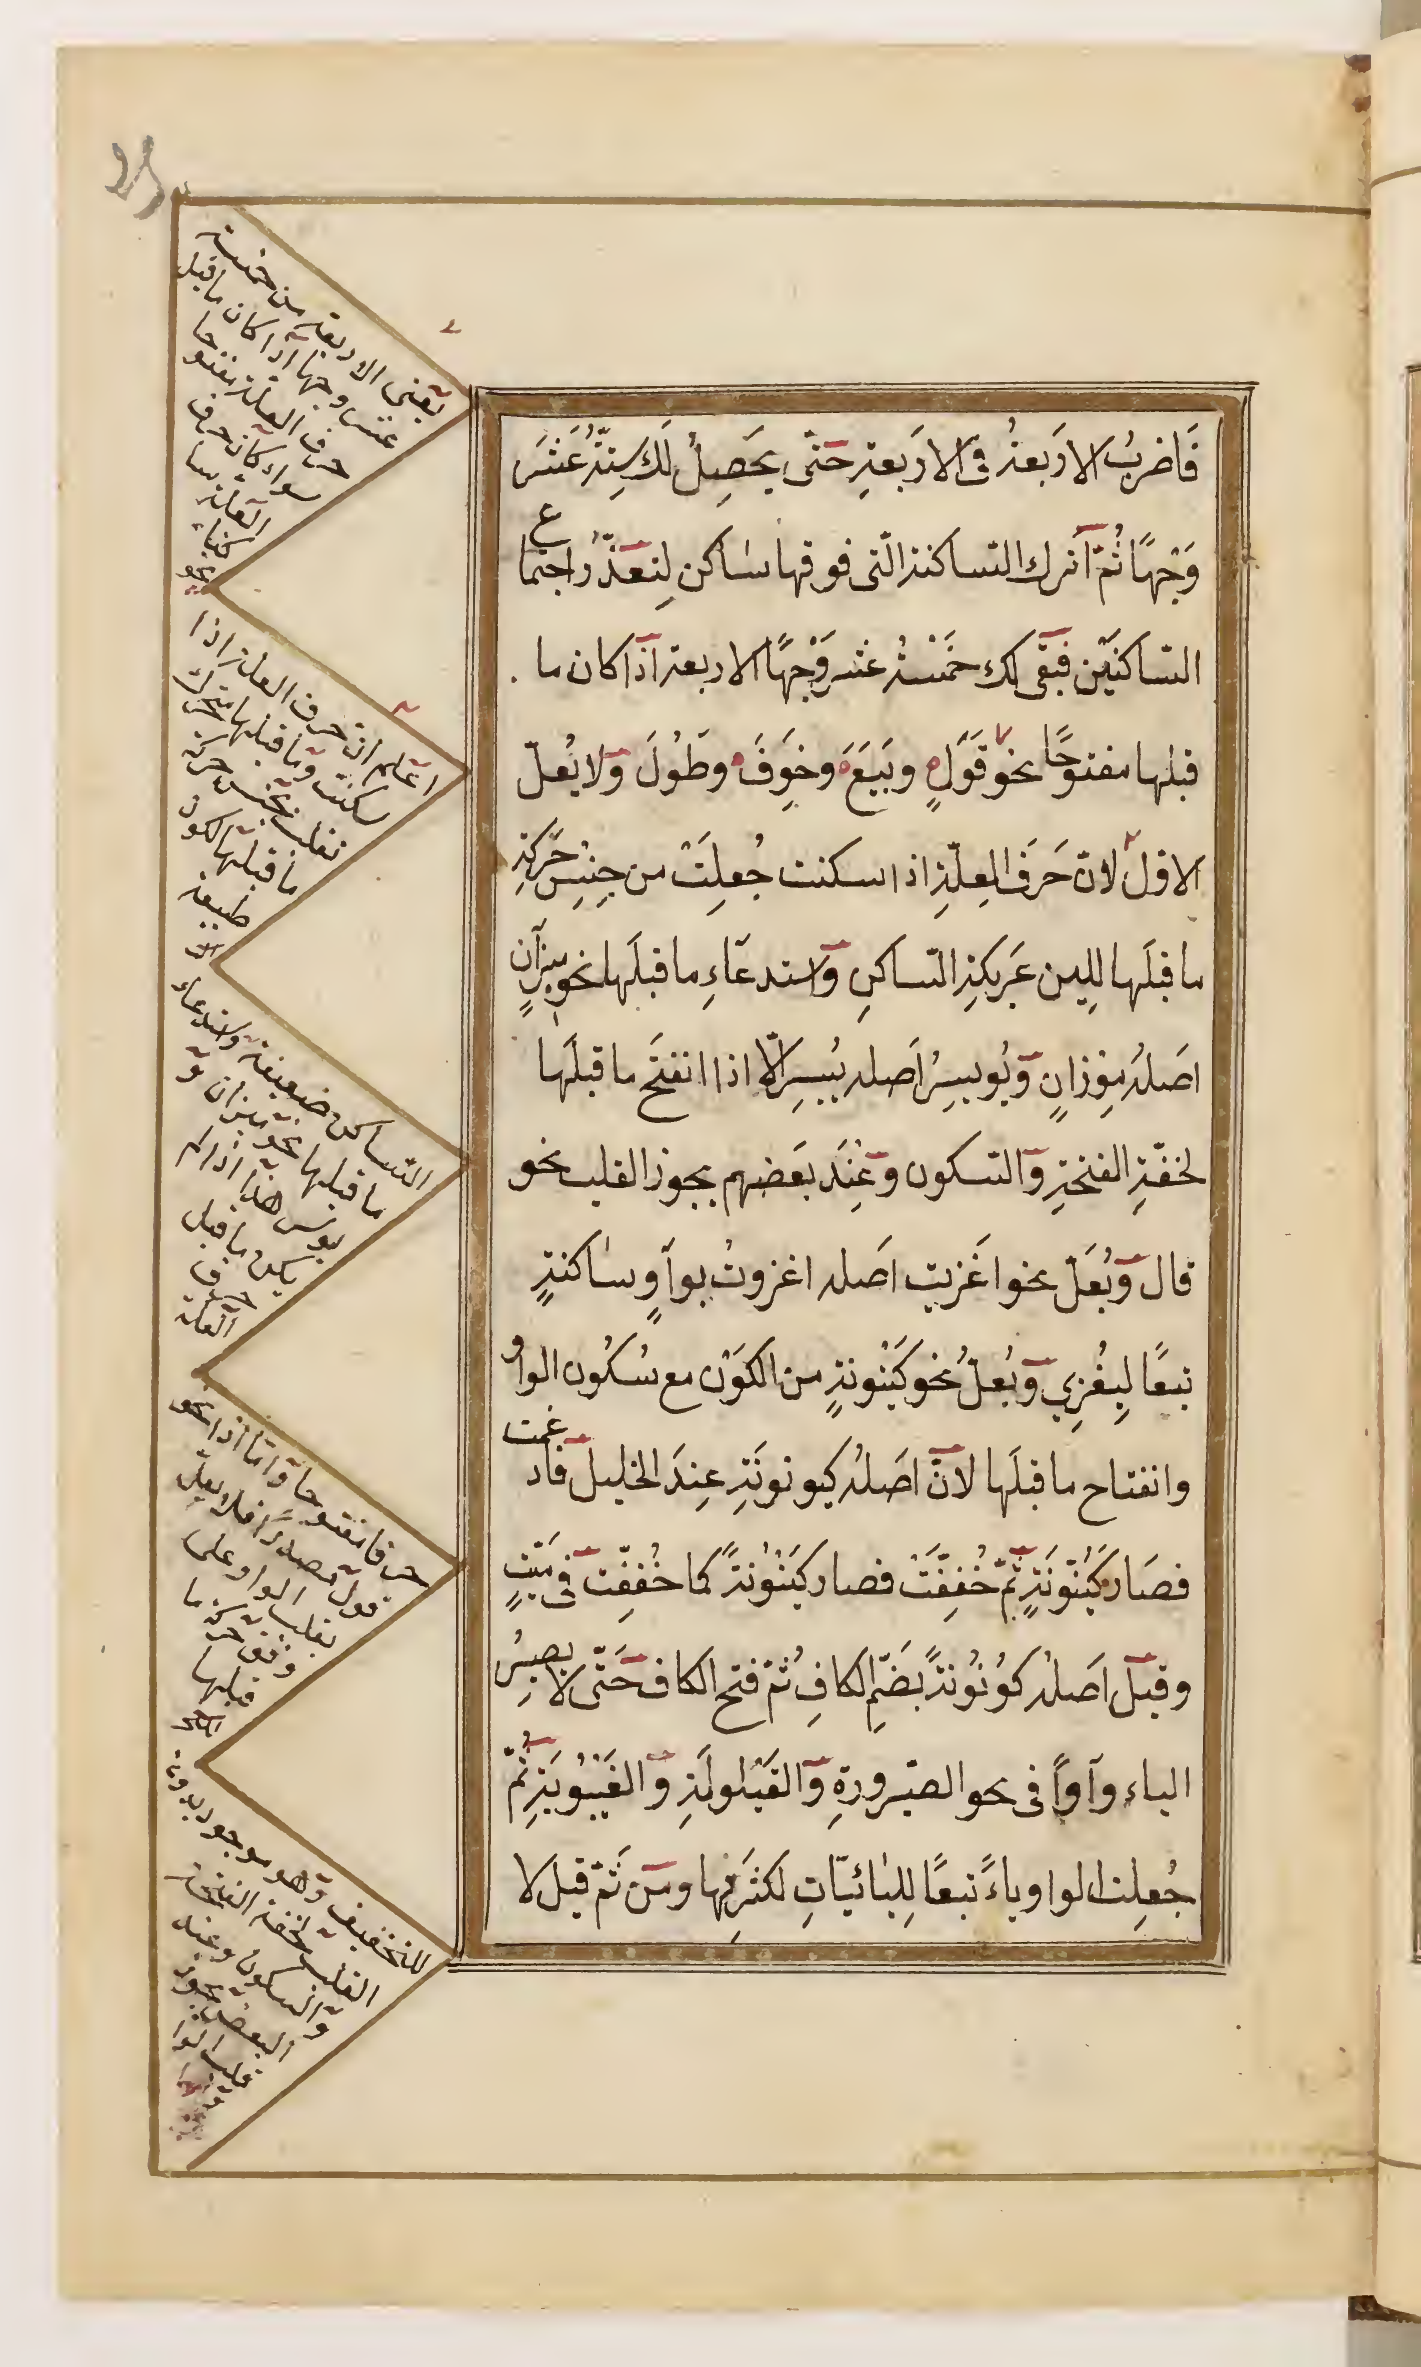 فَاضرِبُ الاَربَعةُ فى الاَربَعةِ حَتّى يَحَصِلُ لَكَ سِتّةُ عَشَرَ
وَجْهًا ثُمّ اَترك السّاكنة الّتى فوقها ساكن لِتعذّرُ اجتماع
السّاكنَين فبَقى لك خمَسْةُ عشر وَجْهًا الاربعة اذا كان ما
قبلها مفتوحًا نحو قَوَلٍ وبَيَعَ وخَوِفَ وطَوُلَ ولا يُعلّ
الاوّل لانّ حَرَف العِلّةِ اذا اسكنت جُعِلَتْ من جِنِسِ حَركَةِ
ما قبلَها لِلِين عَرِيكةِ السّاكنِ وَاستدعَاءِ ما قبلَها نحو مِيزَانٍ
اصَلهُ مِوْزانٍ وَيُويسِرُ اَصله يُيسِرِ الّا اذا انفتَحَ ما قبلَها
لخفّةِ الفتحةِ وَالسّكون وعَنِدَ بَعَضهم يجوز القلب نحو
قال وَيُعَلّ نحو اغَزيت اَصله اغزوتُ بواَوٍ ساكنةٍ
تبعًا لِيغُزِي وَيُعلّ نُحو كَيَنُونةٍ من الكَوَن مع سُكُون الواو
وانفتاح ما قبلَها لانَّ اصَلهُ كيونونَةِ عِندَ الخليل فادغمت
فصَار كَيّنُونَةٍ ثمّ خُفِفّتَْ فصار كيَنُونةً كما خُفِفّت فى مَيّتٍ
وقيل اصَلهُ كوُنُونةً بضَمّ الكافِ ثُمّ فتح الكاف حَتّى لا يصيرُ
الياء وَاواً فى نحو الصّيرورةِ وَالقَيَلولَةِ وَالغَيَبُوبَةِ ثُمّ
جُعِلت الواو ياءً تبعًا لِليائيّاتِ لكثرَتِها ومن ثَمّ قيل لا
يعَنى الاربعة من خمسة
عشر وجها اذا كان ما قبل
حرف العلة مفتوحا
سواء كان حرف
العلة
نحو
اعَلم انّ حرف العلة اذا
سكنت وما قبلها متحرك
تقلب بجنس حركة
ما قبلها لكون
طبيعة
السّاكن ضعيفة واستدعاء
ما قبلها نحو ميزان و
يوسر هذا اذا لم
يكن ما قبل
حرف
العلة
حرفا مفتوحا وَاما اذا نحو
قول مصدرا فلا يعل
بقلب الواو على
وفق حركة ما
قبلها
للتخفيف وهو موجود بدون
القلب لخفة الفتحة
والسكون وعند
البعض يجوز
قلب الوا